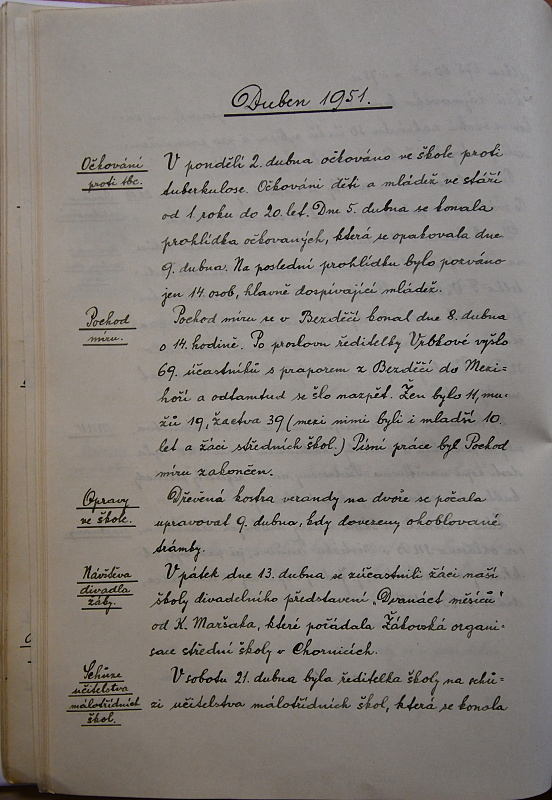 Duben 1951.
Očkování
proti tbc.
V pondělí 2. dubna očkováno ve škole proti
tuberkulose. Očkováni děti a mládež ve stáří
od 1 roku do 20. let. Dne 5. dubna se konala
prohlídka očkovaných, která se opakovala dne
9. dubna. Na poslední prohlídku bylo pozváno
jen 14. osob, hlavně dospívající mládež.
Pochod
míru.
Pochod míru se v Bezděčí konal dne 8. dubna
o 14. hodině. Po proslovu ředitelky Vrbkové vyšlo
69. účastníků s praporem z Bezděčí do Mezi-
hoří a odtamtud se šlo nazpět. Žen bylo 11, mu-
žů 19, žactva 39 (mezi nimi byli i mladší 10.
let a žáci středních škol.) Písní práce byl Pochod
míru zakončen.
Opravy
ve škole.
Dřevěná kostra verandy na dvoře se počala
upravovat 9. dubna, kdy dovezeny ohoblované
trámby.
Návštěva
divadla
žáky.
V pátek dne 13. dubna se zúčastnili žáci naší
školy divadelního představení „Dvanáct měsíců"
od K. Maršaka, které pořádala Žákovská organi-
sace střední školy v Chornicích.
Schůze
učitelstva
málotřídních
škol.
V sobotu 21. dubna byla ředitelka školy na schů-
zi učitelstva málotřídních škol, která se konala